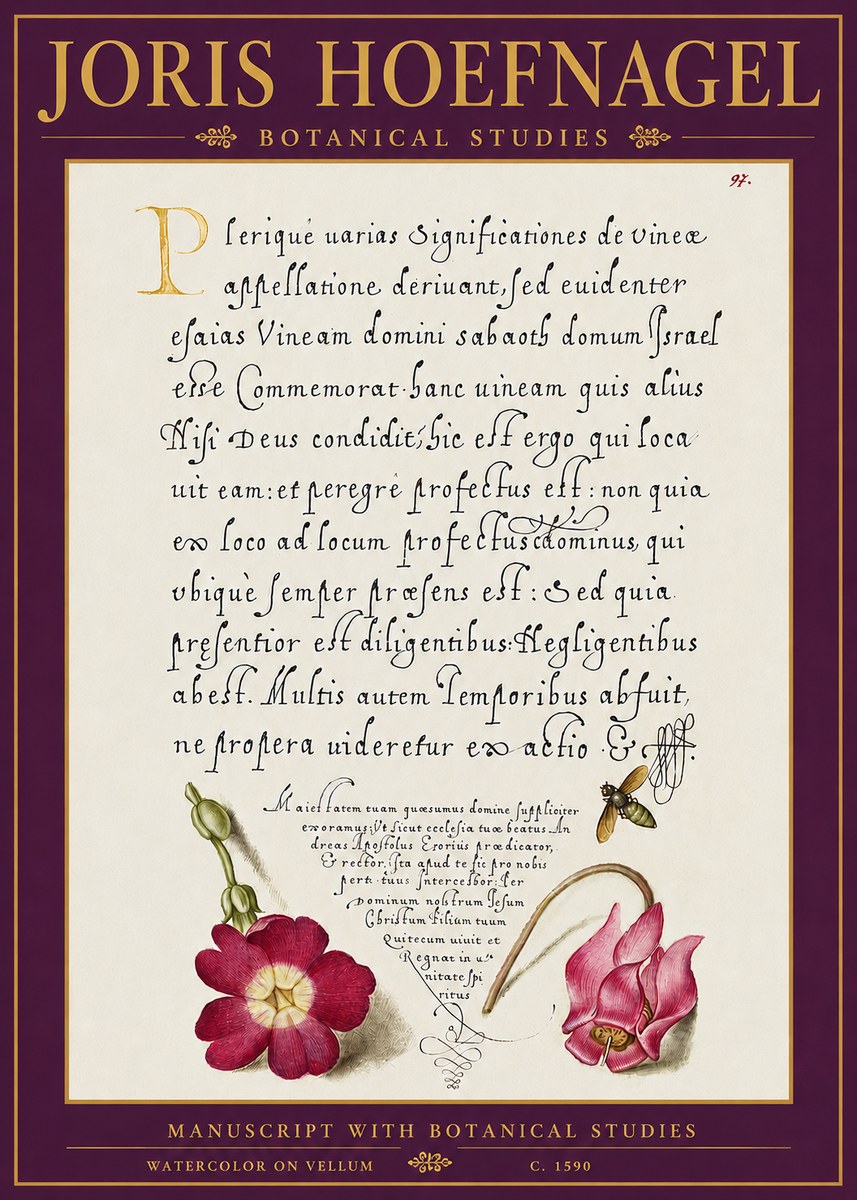 JORIS HOEFNAGEL
BOTANICAL STUDIES
97.
Plerique uarias Significationes de vineæ
appellatione deriuant, sed euidenter
esaias Vineam domini sabaoth domum Israel
esse Commemorat. hanc uineam quis alius
Nisi Deus condidit; hic est ergo qui loca
uit eam: et peregrè profectus est: non quia
ex loco ad locum profectus dominus, qui
vbiquè semper præsens est: Sed quia
presentior est diligentibus: Negligentibus
abest. Multis autem Temporibus abfuit,
ne propera uideretur exactio. &
Maiestatem tuam quæsumus domine suppliciter
exoramus: Vt sicut ecclesia tuæ beatus An
dreas Apostolus Exorius prædicator,
& rector. Ita apud te sic pro nobis
perti tuus Intercessor: Per
Dominum nostrum Jesum
Christum Filium tuum
Qui tecum uiuit et
Regnat in u
nitate spi
ritus
MANUSCRIPT WITH BOTANICAL STUDIES
WATERCOLOR ON VELLUM C. 1590